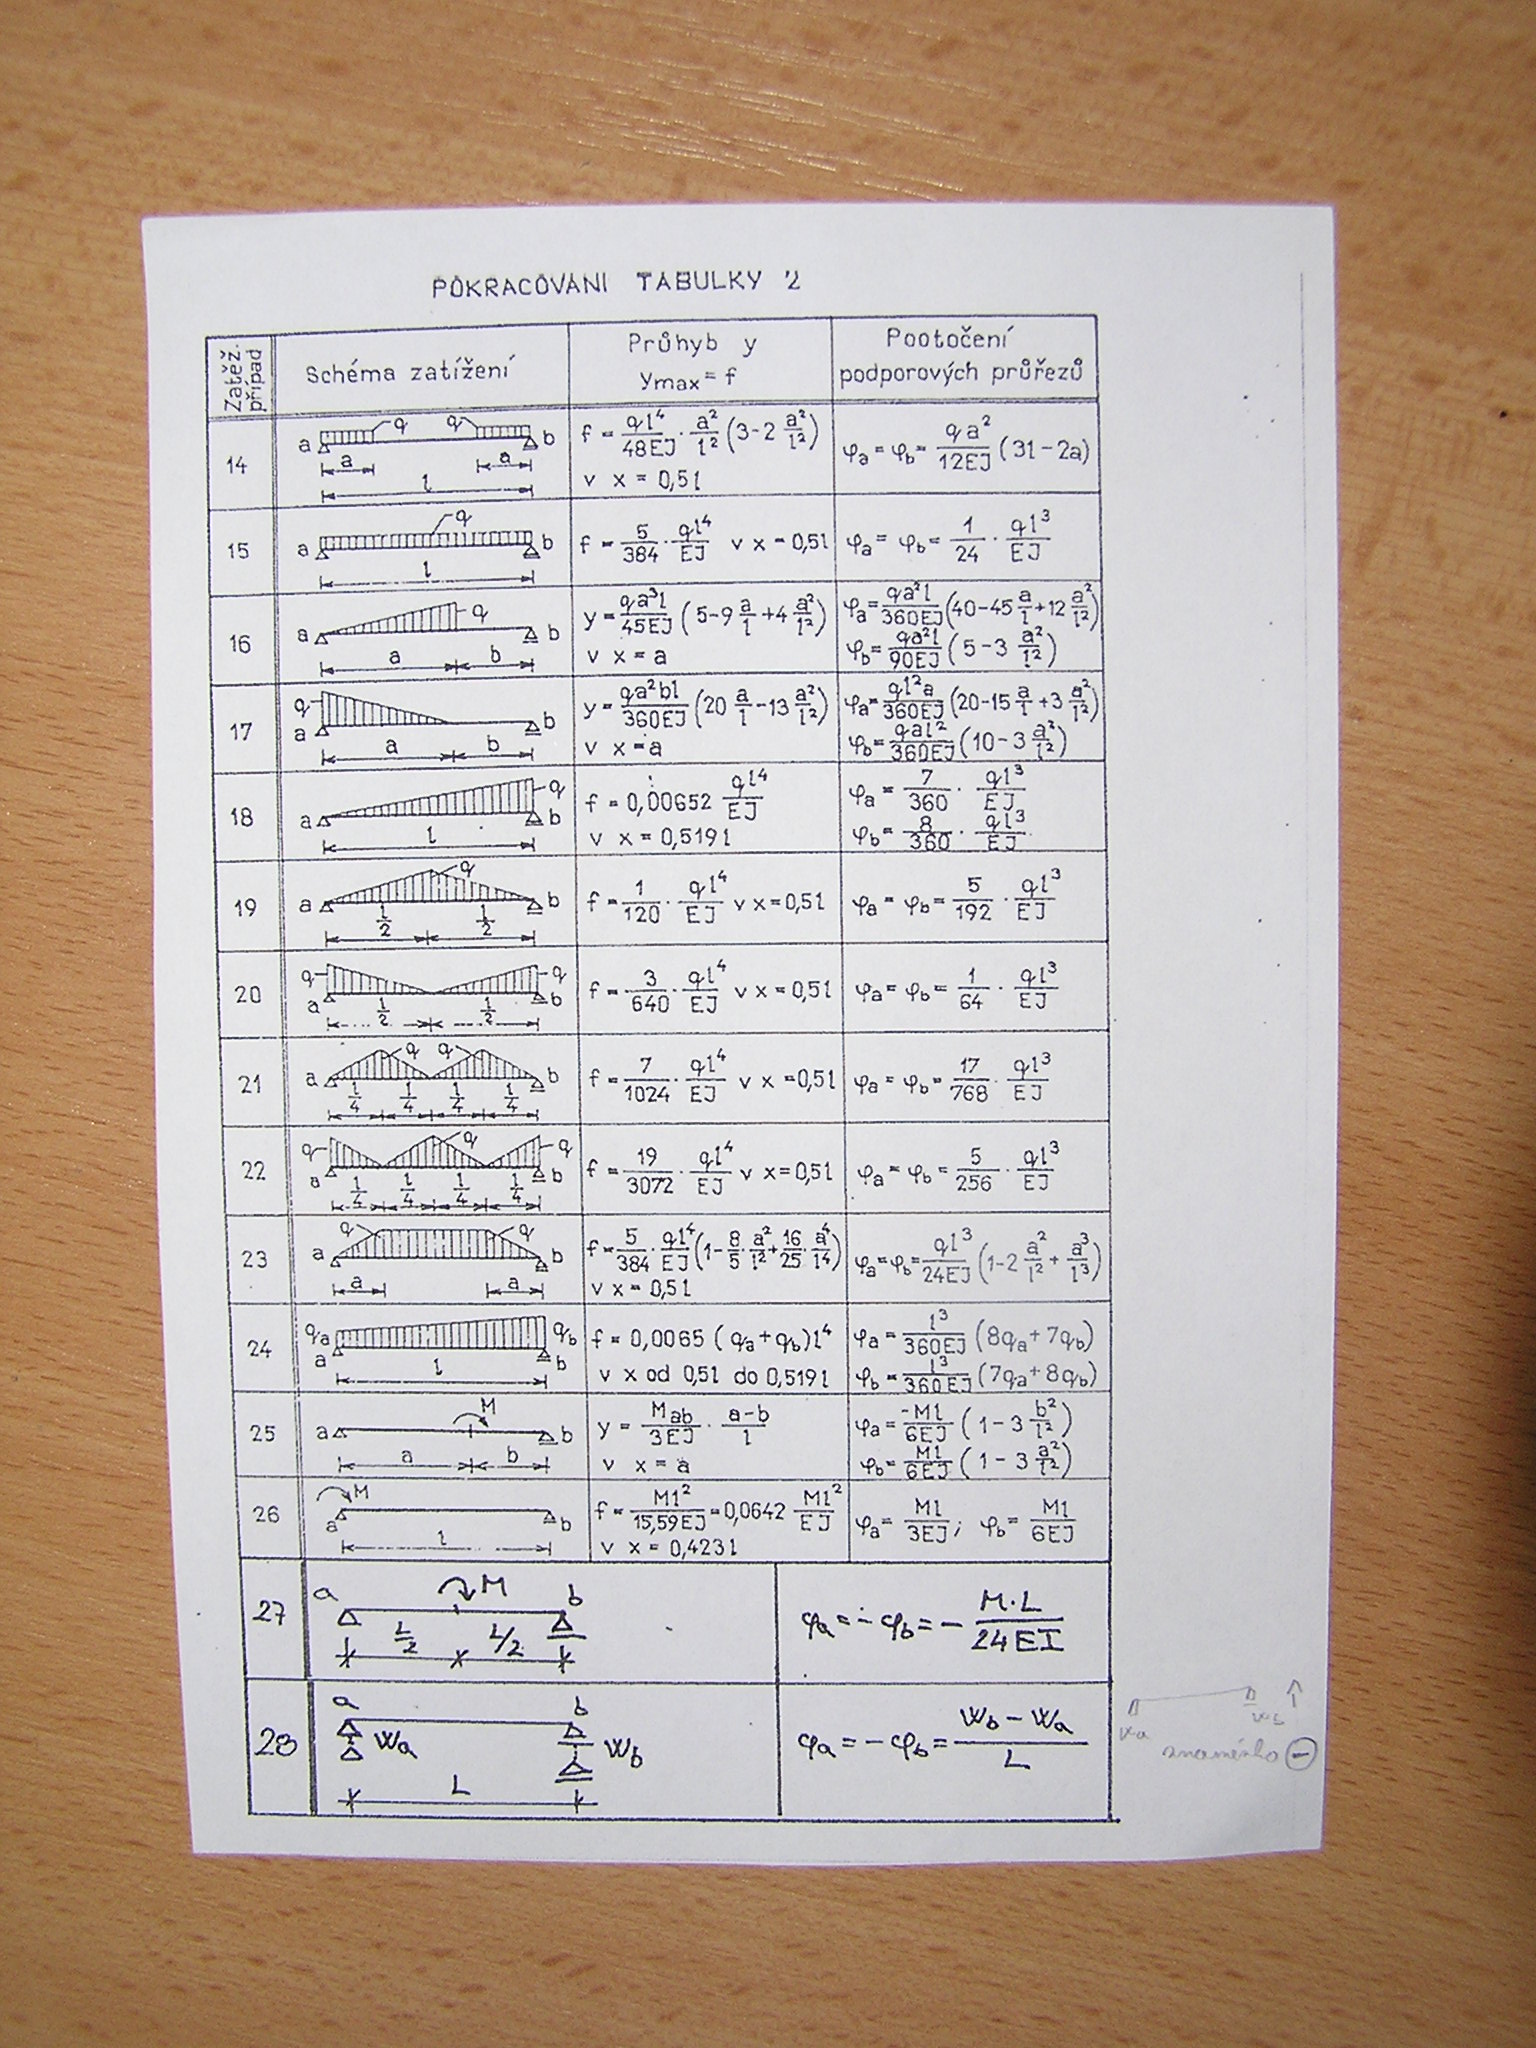 POKRAČOVÁNÍ TABULKY 2
Zatěž. případ
Schéma zatížení
Průhyb y
ymax = f
Pootočení
podporových průřezů
14
a q q b
a a
l
f = ql⁴/48EJ · a²/l² (3-2 a²/l²)
v x = 0,5l
φa = φb = qa²/12EJ (3l - 2a)
15
a q b
l
f = 5/384 · ql⁴/EJ v x = 0,5l
φa = φb = 1/24 · ql³/EJ
16
a q b
a b
y = qa³l/45EJ (5-9 a/l +4 a²/l²)
v x = a
φa = qa²l/360EJ (40-45 a/l +12 a²/l²)
φb = qa²l/90EJ (5-3 a²/l²)
17
q a b
a b
y = qa²bl/360EJ (20 a/l -13 a²/l²)
v x = a
φa = ql²a/360EJ (20-15 a/l +3 a²/l²)
φb = qal²/360EJ (10-3 a²/l²)
18
a q b
l
f = 0,00652 ql⁴/EJ
v x = 0,519l
φa = 7/360 · ql³/EJ
φb = 8/360 · ql³/EJ
19
a q b
l/2 l/2
f = 1/120 · ql⁴/EJ v x = 0,5l
φa = φb = 5/192 · ql³/EJ
20
q q
a b
l/2 l/2
f = 3/640 · ql⁴/EJ v x = 0,5l
φa = φb = 1/64 · ql³/EJ
21
a q q b
l/4 l/4 l/4 l/4
f = 7/1024 · ql⁴/EJ v x = 0,5l
φa = φb = 17/768 · ql³/EJ
22
q q q
a b
l/4 l/4 l/4 l/4
f = 19/3072 · ql⁴/EJ v x = 0,5l
φa = φb = 5/256 · ql³/EJ
23
q q
a b
a a
f = 5/384 · ql⁴/EJ (1 - 8/5 · a²/l² + 16/25 · a⁴/l⁴)
v x = 0,5l
φa = φb = ql³/24EJ (1-2 a²/l² + a³/l³)
24
qa qb
a b
l
f = 0,0065 (qa + qb) l⁴
v x od 0,5l do 0,519l
φa = l³/360EJ (8qa + 7qb)
φb = l³/360EJ (7qa + 8qb)
25
a M b
a b
y = Mab/3EJ · a-b/l
v x = a
φa = -Ml/6EJ (1-3 b²/l²)
φb = Ml/6EJ (1-3 a²/l²)
26
M
a b
l
f = Ml²/15,59EJ = 0,0642 Ml²/EJ
v x = 0,423l
φa = Ml/3EJ ; φb = Ml/6EJ
27
a M b
L/2 L/2
φa = - φb = - M·L/24EI
28
a b
Wa Wb
L
φa = - φb = Wb - Wa/L
wa wb
znaménko -